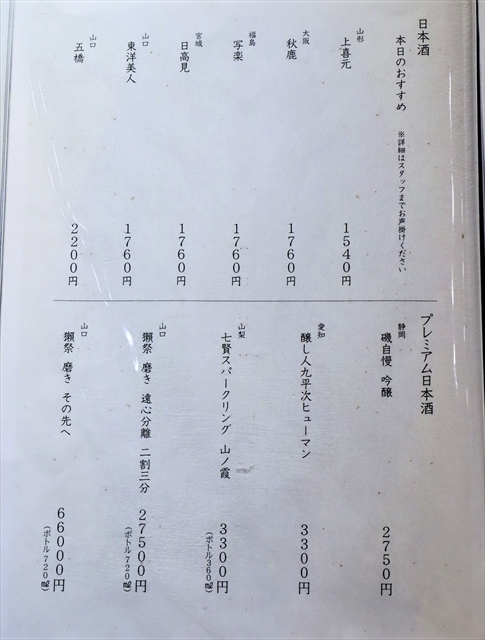 日本酒
本日のおすすめ ※詳細はスタッフまでお声掛けください
山形
上喜元 1540円
大阪
秋鹿 1760円
福島
写楽 1760円
宮城
日高見 1760円
山口
東洋美人 1760円
山口
五橋 2200円
プレミアム日本酒
静岡
磯自慢 吟醸 2750円
愛知
醸し人九平次ヒューマン 3300円
山梨
七賢スパークリング 山ノ霞 3300円
(ボトル360㎖)
山口
獺祭 磨き 遠心分離 二割三分 27500円
(ボトル720㎖)
山口
獺祭 磨き その先へ 66000円
(ボトル720㎖)